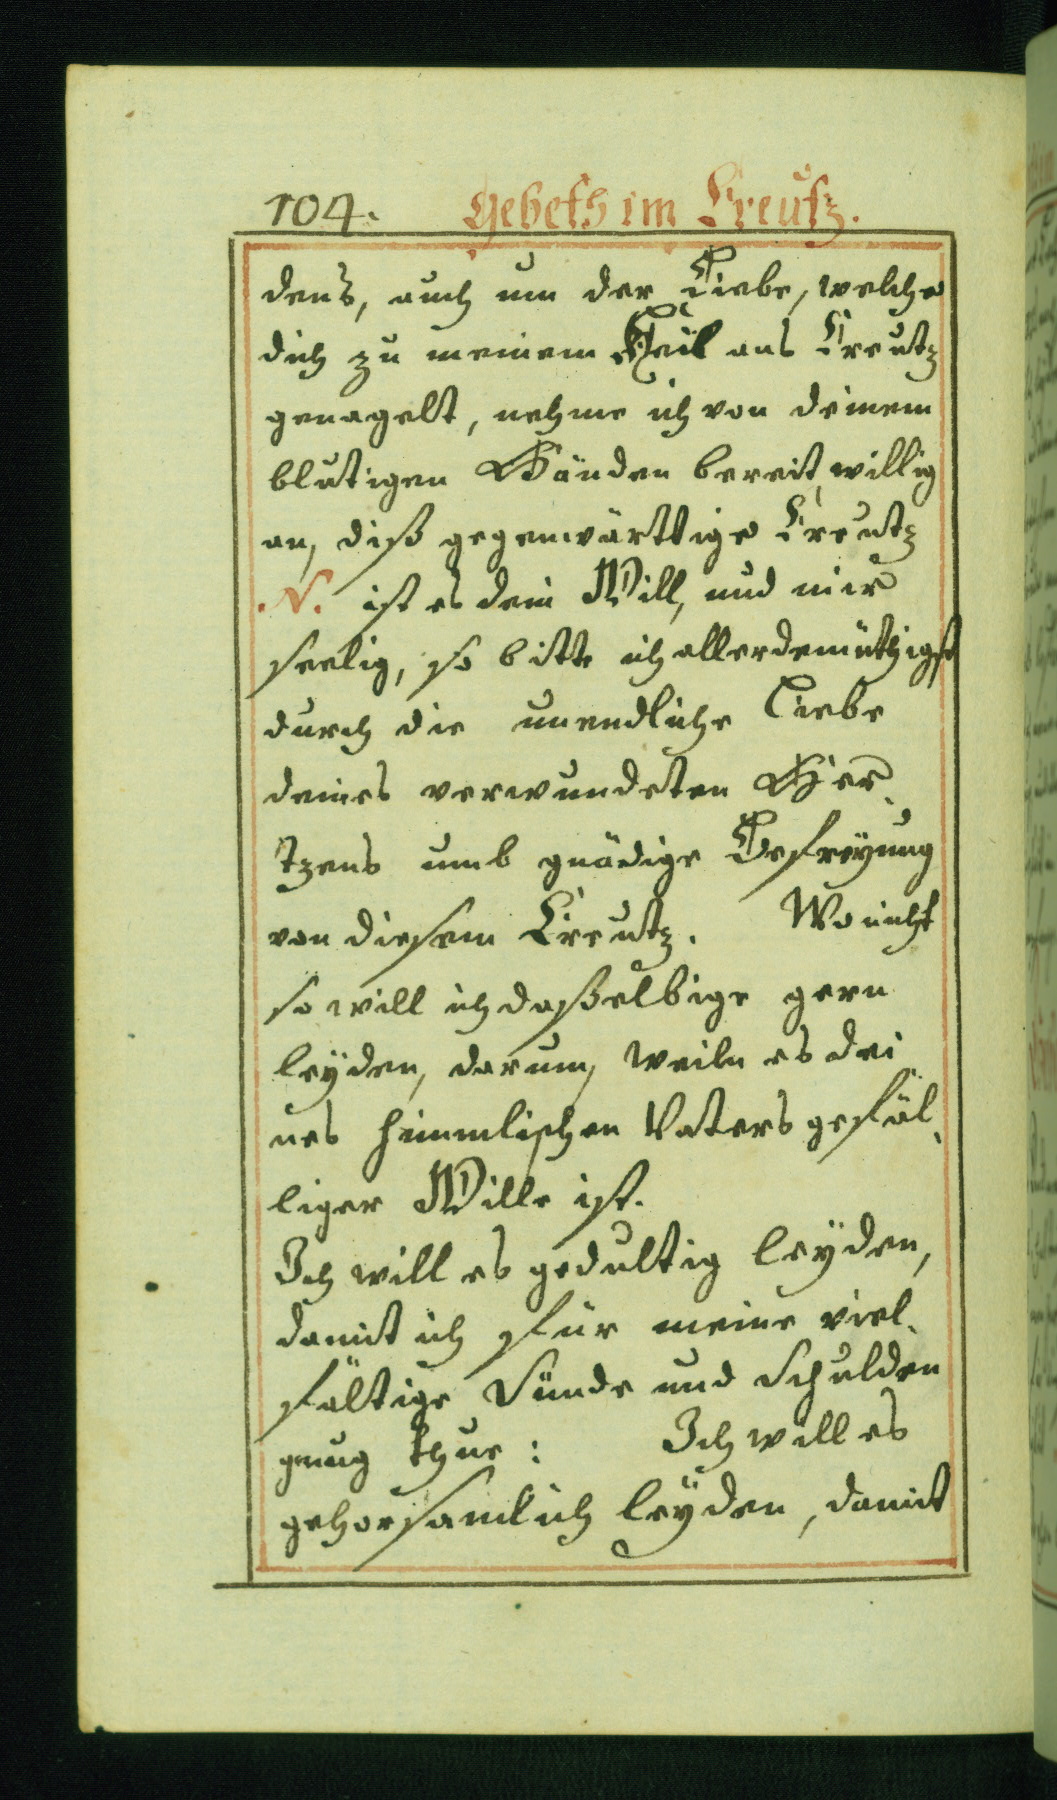 104. Gebeth im Creutz.
dens, auch um der Liebe, welche
dich zu meinem Heil ans Creutz
genagelt, nehme ich von deinem
blutigen Händen bereit willig
an, diß gegenwärttige Creutz
.N. ist es dein Will, und mir
seelig, so bitte ich allerdemüthigst
durch die unendliche Liebe
deines verwundeten Her
tzens umb gnädige Befreÿung
von diesem Creutz. Wo nicht
so will ich daßelbige gern
leÿden, darum, weiln es dei
nes himmlischen Vaters gefäl
liger Wille ist.
Ich will es gedultig leÿden,
damit ich für meine viel
fältige Sünde und Schulden
gnug thue: Ich will es
gehorsamlich leÿden, damit